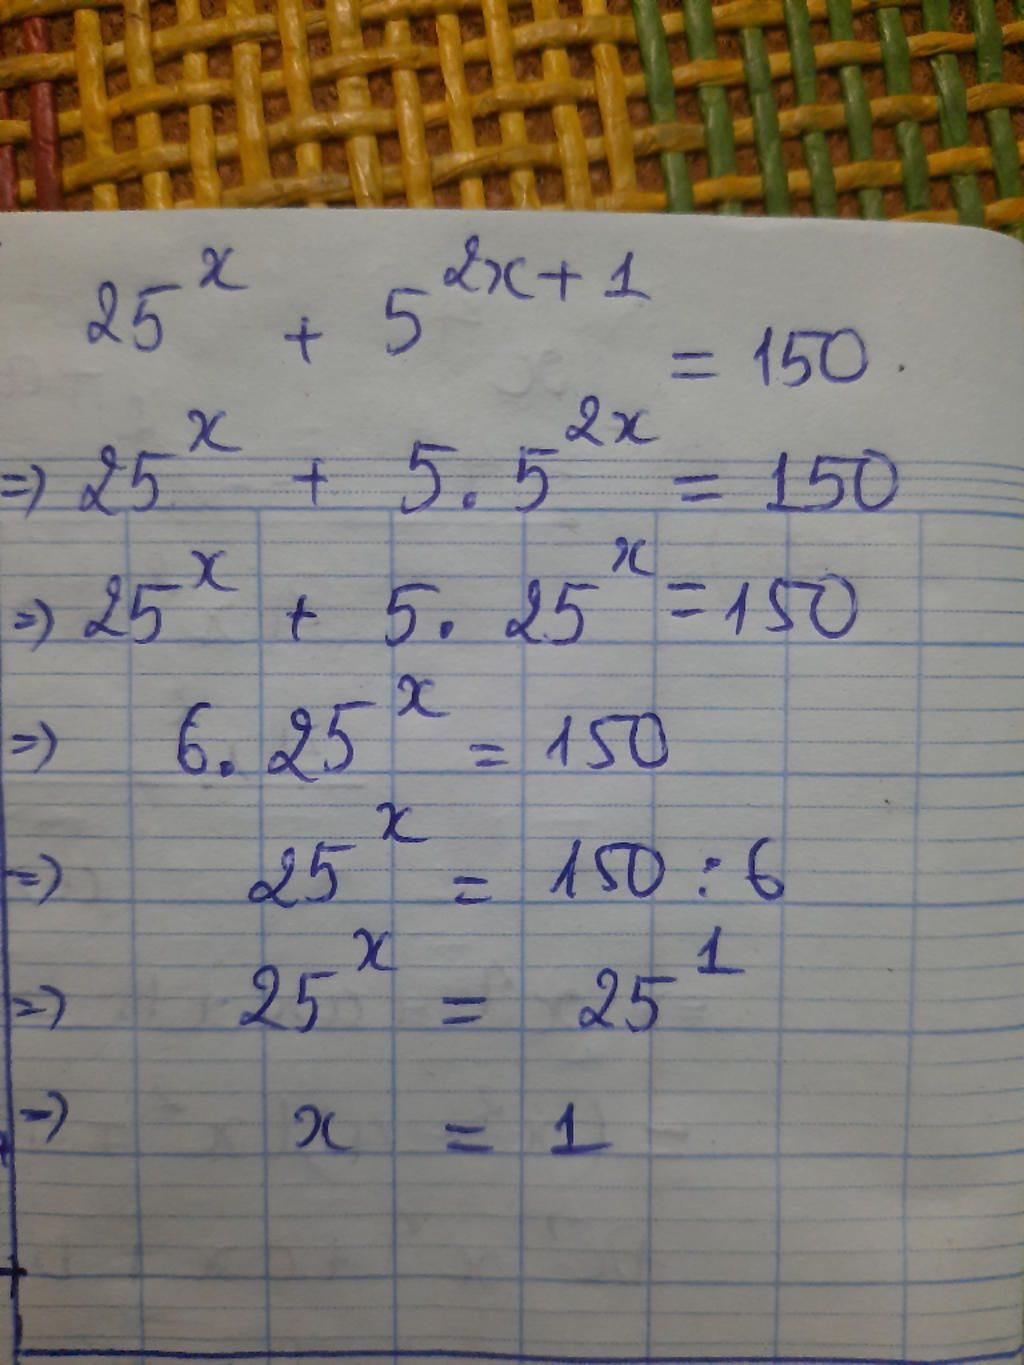 25^x + 5^{2x+1} = 150.
=> 25^x + 5.5^{2x} = 150
=> 25^x + 5.25^x = 150
=> 6.25^x = 150
=> 25^x = 150 : 6
=> 25^x = 25^1
=> x = 1